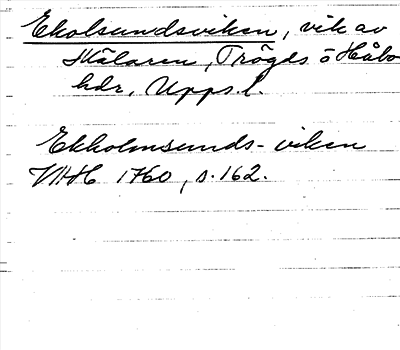 Ekolsundsviken, vik av
Mälaren, Trögds o Håbo
hdr, Upps.l.
Ekholmsunds-viken
VHAH 1760, s. 162.